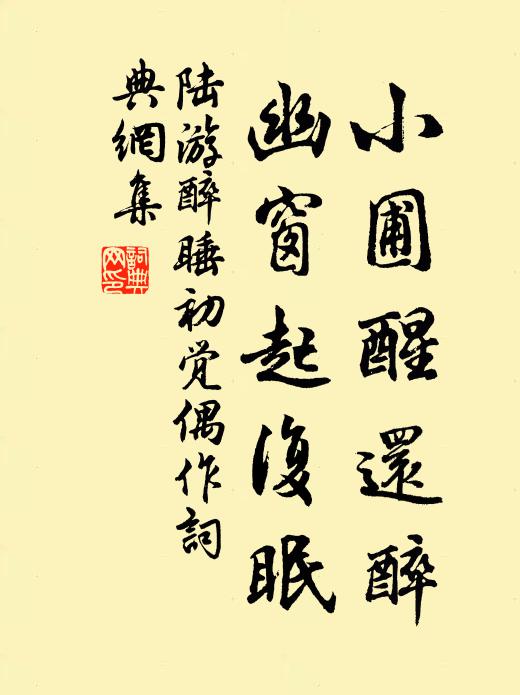 小圃醒還醉
幽窗起復眠
陸游醉睡初覚偶作詞
典網集
詞典
网印